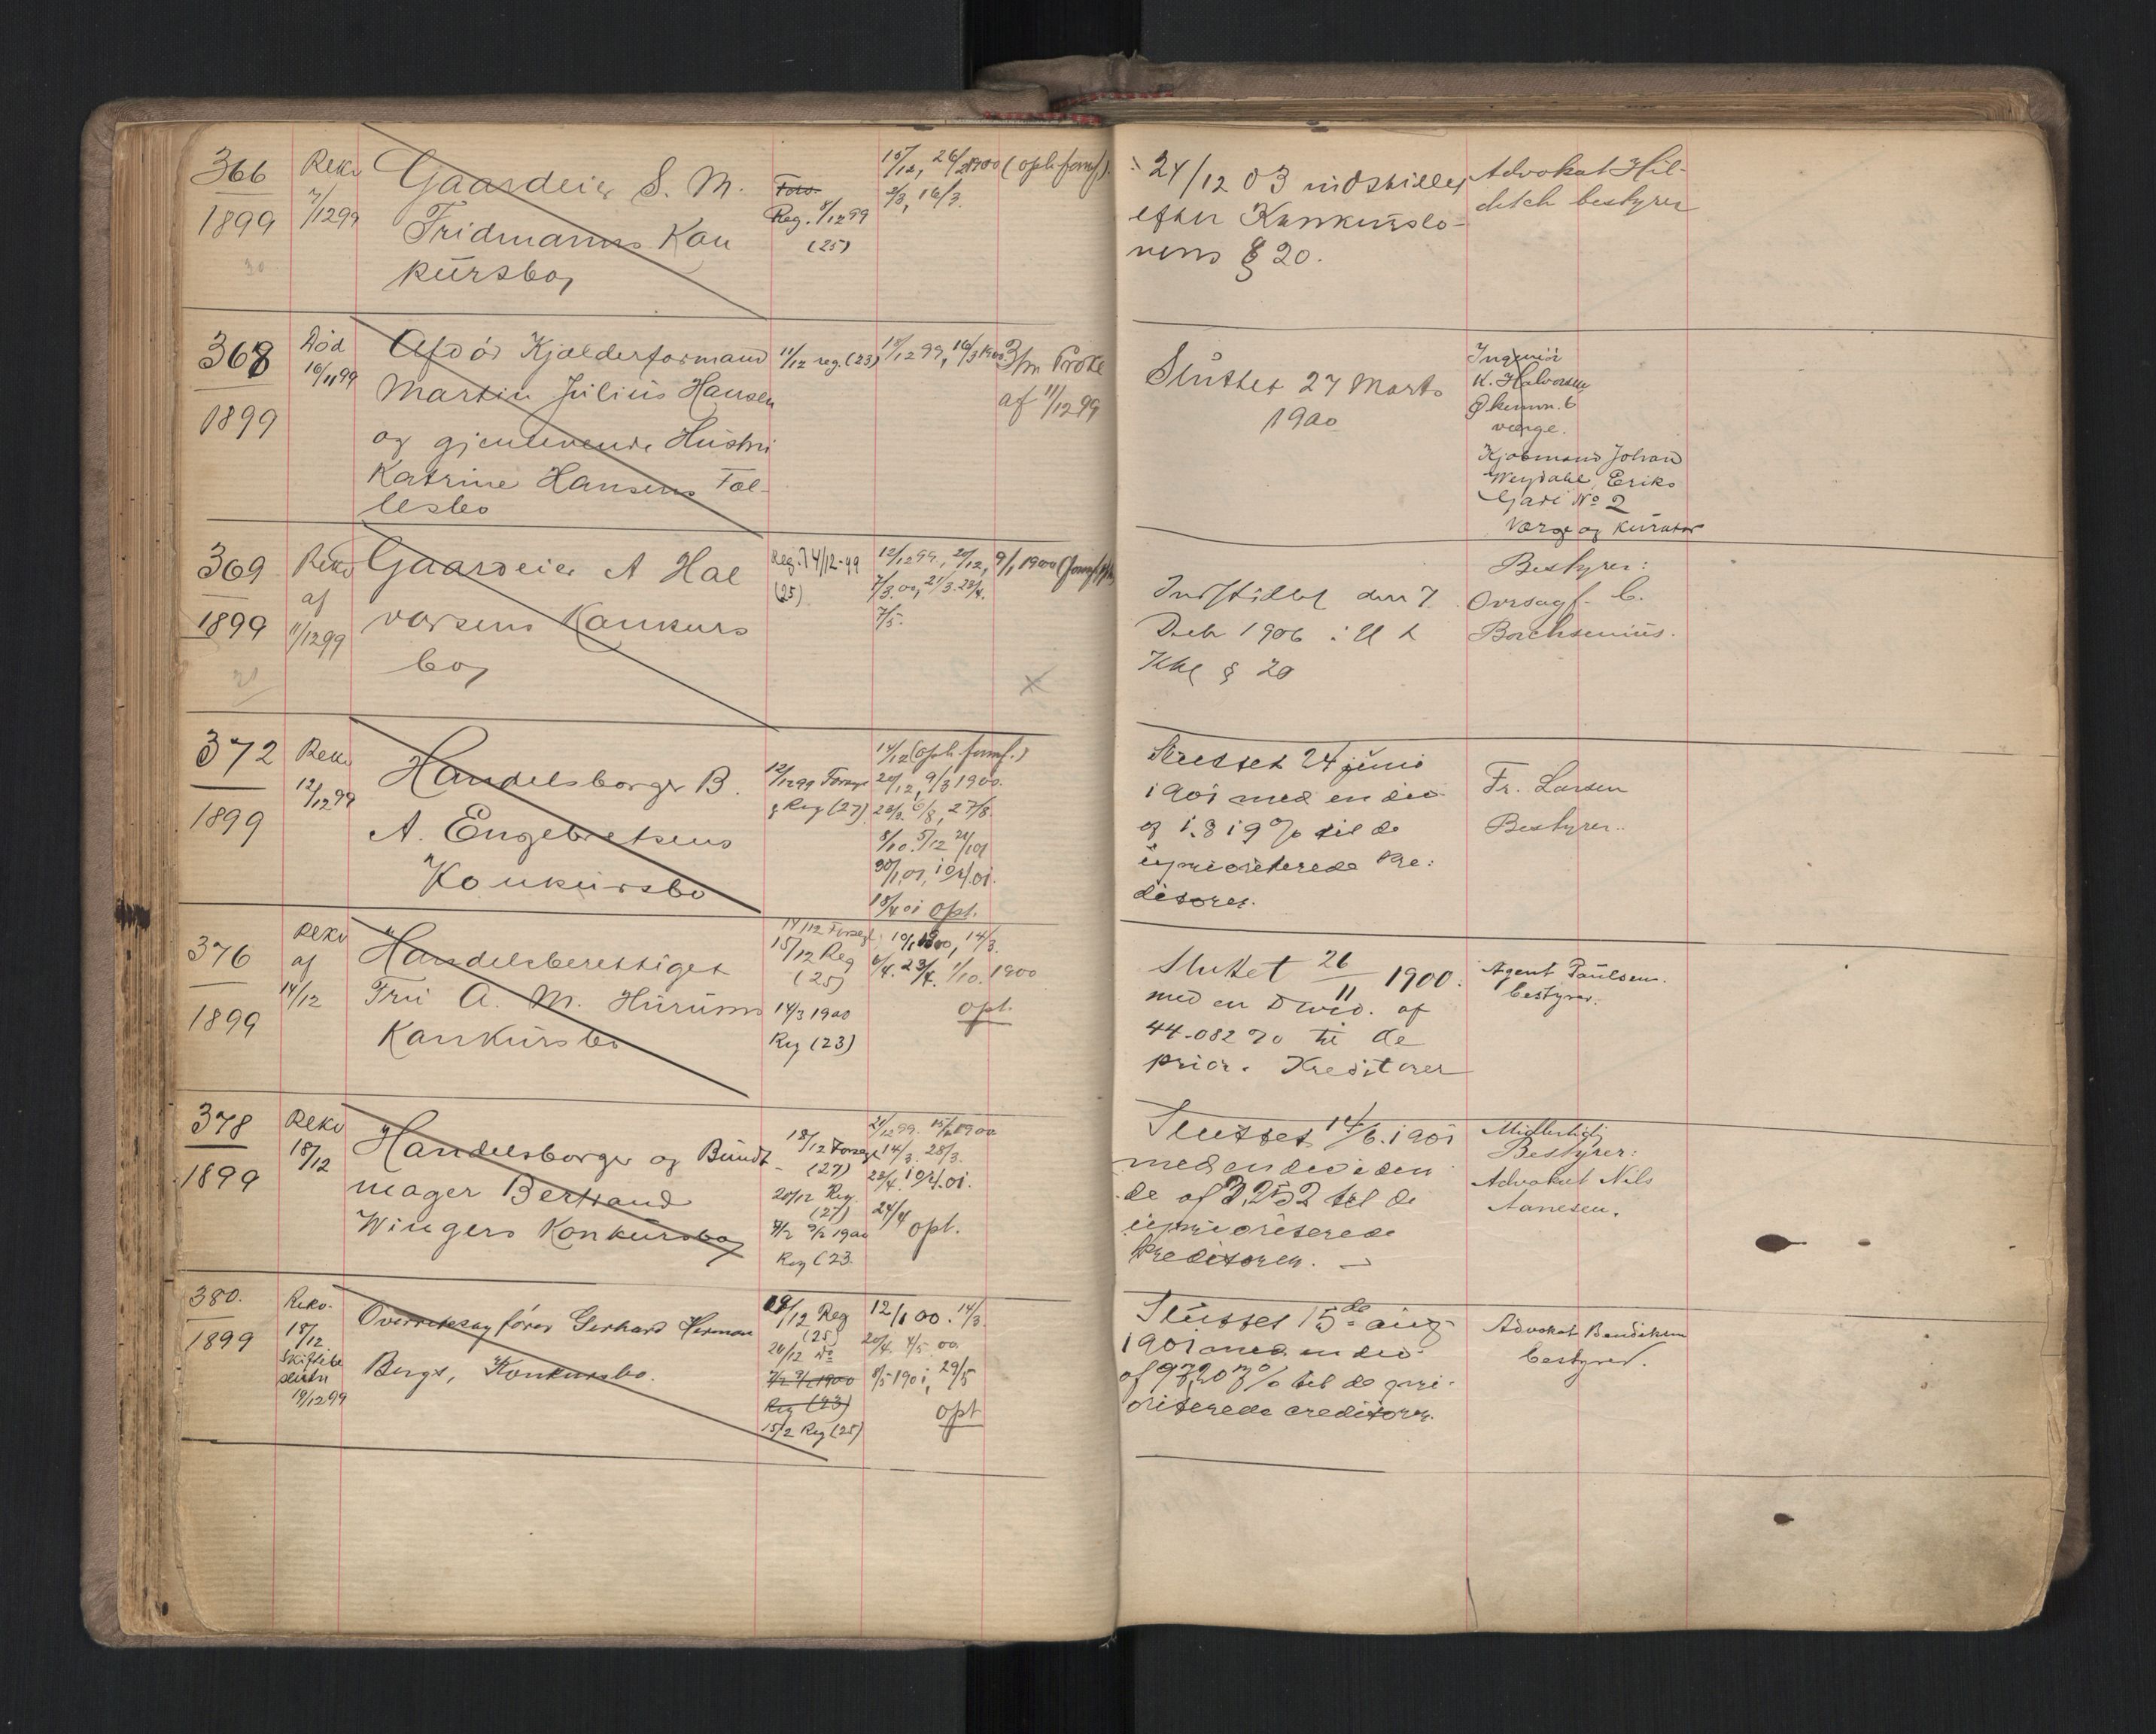 366
1899
30
Rekv
7/12 99
Gaardeier S. M.
Fridmanns Kon
kursbo,
Fors.
Reg. 8/12 99
(25)
15/12, 26/2 1900 (oph. forref.)
2/3, 16/3.
24/12 03 indstillet
efter Konkurslo-
vens § 20.
Advokat Hil-
ditch bestyrer
368
1899
Død
16/11 99
Afdøde Kjælderformand
Martin Julius Hansen
og gjenlevende Hustru
Katrine Hansens Fæl-
lesbo
11/12 reg. (23)
15/12 99, 16/3 1900.
af 11/12 99
Sluttet 27 Marts
1900
Ingeniør
K. Halvorsen
værge.
Kjøbmand Johan
Weydahl, Eriks
Gade No 2
Værge og Kurator
369
1899
21
Rekv
af
11/12 99
Gaardeier A Hal
vorsens Konkurs
bo,
Reg. 14/12-99
(25)
12/12 99, 20/12, 9/1 1900
7/3.00, 21/3. 23/4.
7/5.
x
Indstillet den 7
Decbr 1906 i H t
Kkl § 20
Bestyrer:
Ovrsagf. C.
Borchsenius.
372
1899
Rekv
12/12 99
Handelsborger B.
A. Engebretsens
Konkursbo
12/12 99 Forsegl
& Reg (27)
14/12 (oph. forref.)
20/12, 9/3 1900.
27/8.
8/10. 5/12
18/4 01 opt.
Sluttet 24 juni
1901 med en div.
af 1.819% til de
uprioriterede Kre:
ditorer.
Fr. Larsen
Bestyrer..
376
1899
Rekv
af
14/12
Handelsberettiget
Fru A. M. Hurums
Konkursbo
14/12 Forsegl.
15/12 Reg
(25)
14/3 1900
Reg (23)
10/1 1900, 14/3.
6/4. 23/4. 1/10. 1900
opt.
Sluttet 26/11 1900.
med en Divid. af
44.082 % til de
prior. Kreditorer
Agent Paulsen.
bestyrer.
378
1899
Rekv
18/12
Handelsborger og Bundt
mager Bertrand
Wingers Konkursbo,
18/12 Forsegl
(27)
20/12 Reg.
(27)
9/2 1900
Reg (23
21/12 99. 15/2 1900
14/3. 28/3.
24/4
opt.
Sluttet 14/6. 1901
med en dividen
de af 3,252 til de
uprioriterede
Kreditorer.
Midlertidig
Bestyrer:
Advokat Nils
Aanesen.
380.
1899
Rekv.
18/12
Skiftebe
slutn
19/12 99
Overretssagfører Gerhard Herman
Bergs, Konkursbo.
19/12 Reg
(25)
20/12 do
7/2 9/2 1900
Reg (23)
15/2 Reg (25)
12/1 00. 14/3.
20/4. 4/5. 00.
8/5 1901, 29/5
opt
Sluttet 15de aug
1901 med en div.
af 97,203% til de pri-
oriterede creditorer.
Advokat Bendiksen
bestyrer.